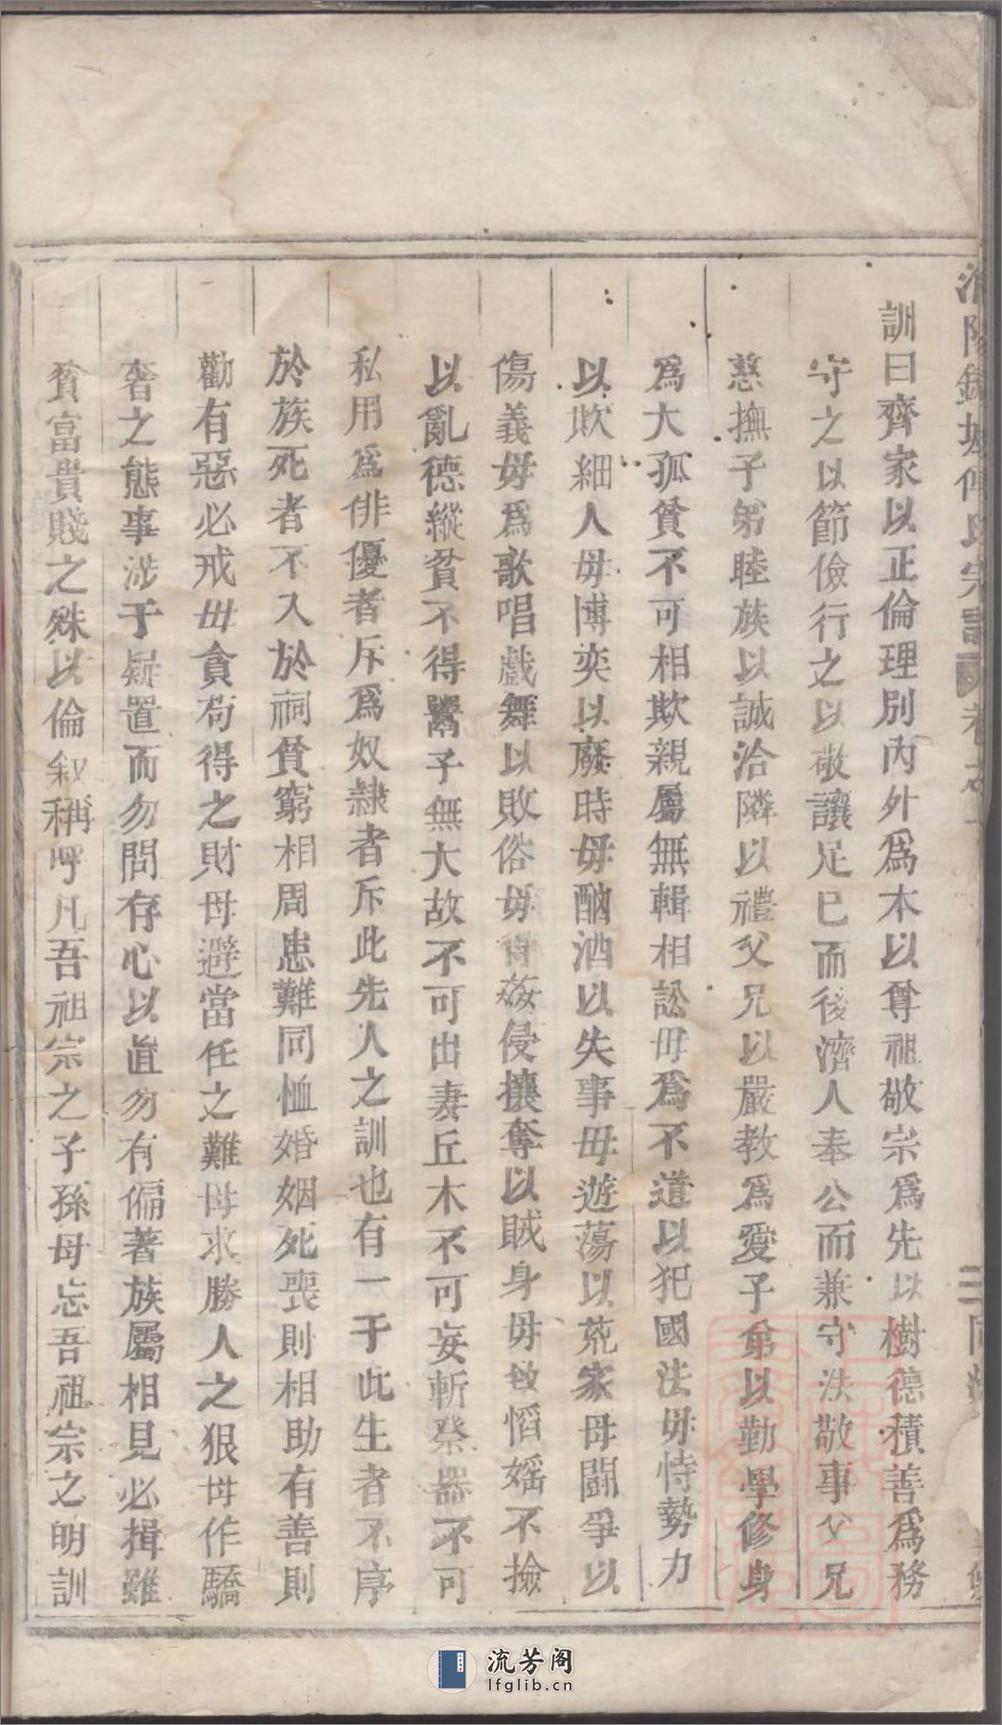 訓曰齊家以正倫理別內外爲本以尊祖敬宗爲先以樹德積善爲務
守之以節儉行之以敬讓足已而後濟人奉公而兼守法敬事父兄
慈撫子弟睦族以誠洽隣以禮父兄以嚴教爲愛子弟以勤學修身
爲大孤貧不可相欺親屬無輯相訟毋爲不道以犯國法毋恃勢力
以欺細人毋博奕以廢時毋酗酒以失事毋遊蕩以荒家毋鬪爭以
傷義毋爲歌唱戲舞以敗俗毋姦侵攘奪以賊身毋慆婬不撿
以亂德縱貧不得鬻子無大故不可出妻丘木不可妄斬祭器不可
私用爲俳優者斥爲奴隷者斥此先人之訓也有一于此生者不序
於族死者不入於祠貧窮相周患難同恤婚姻死喪則相助有善則
勸有惡必戒毋貪苟得之財母避當任之難母求勝人之狠毋作驕
奢之態事涉于疑置而勿問存心以直勿有偏著族屬相見必揖雖
貧富貴賤之殊以倫叙稱呼凡吾祖宗之子孫母忘吾祖宗之明訓
宗譜
流芳阁
lfglib.cn